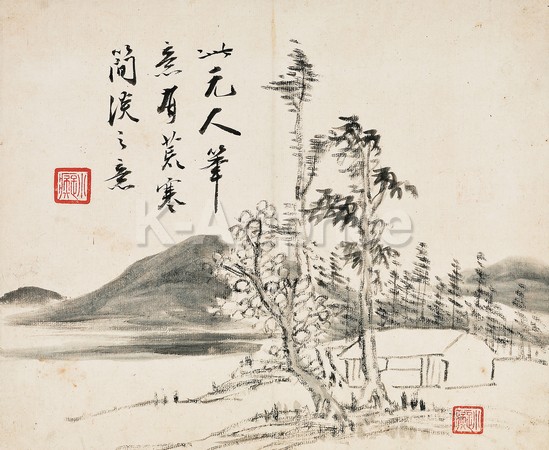 此元人筆
意有荒寒
簡淡之意